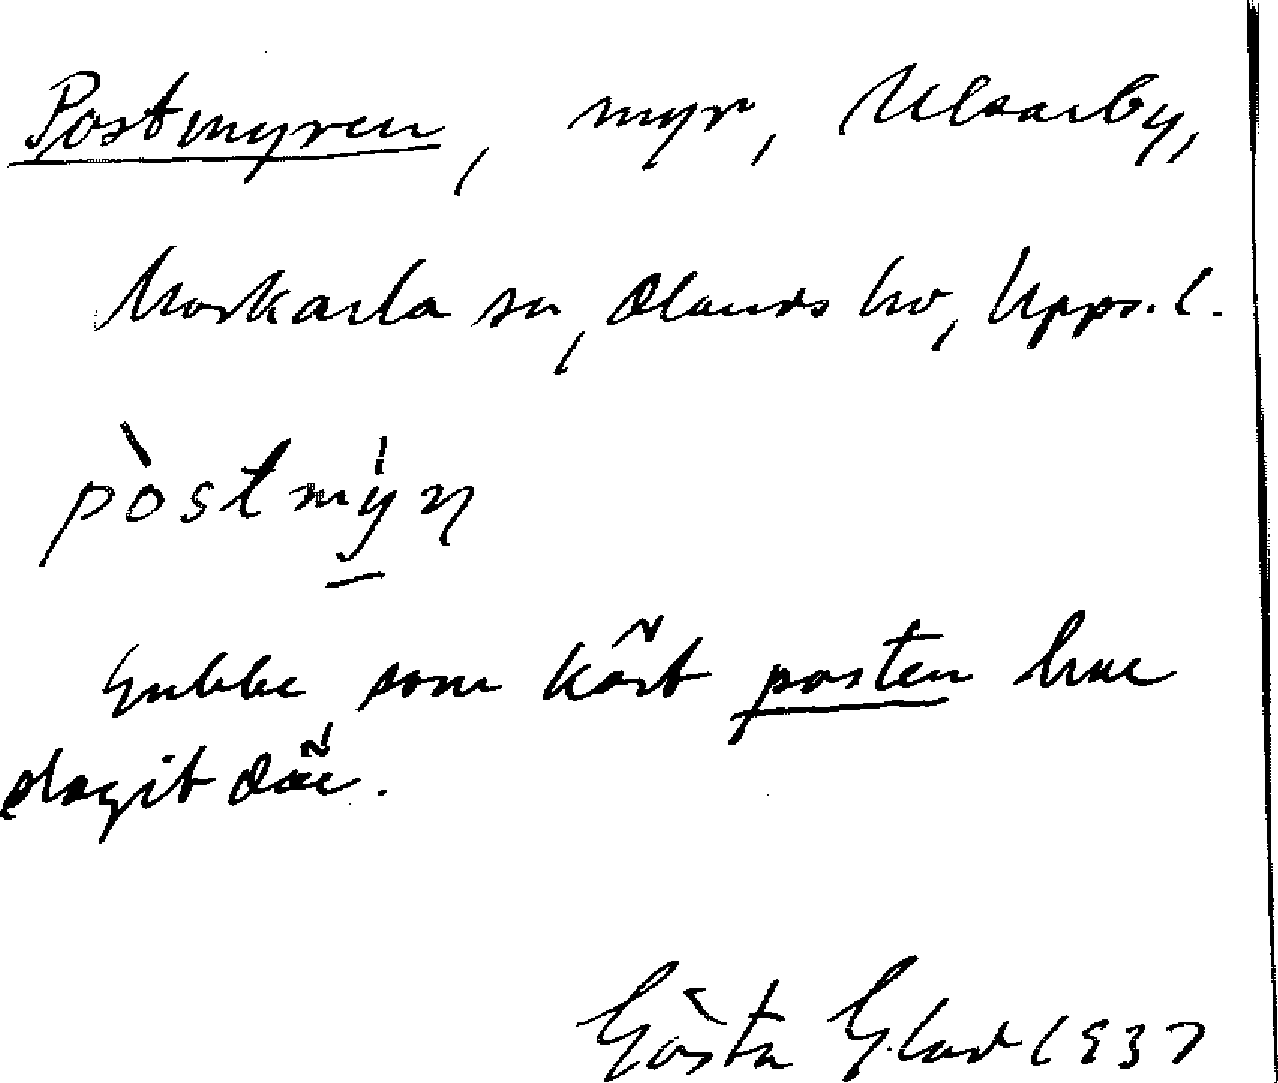 Postmyren, myr, Ulvarby,
Morkarla sn, Olands hd, Upps. l.
pòstmý̱n
Gubbe som kört posten har
slagit där.
Gösta Glad 1937